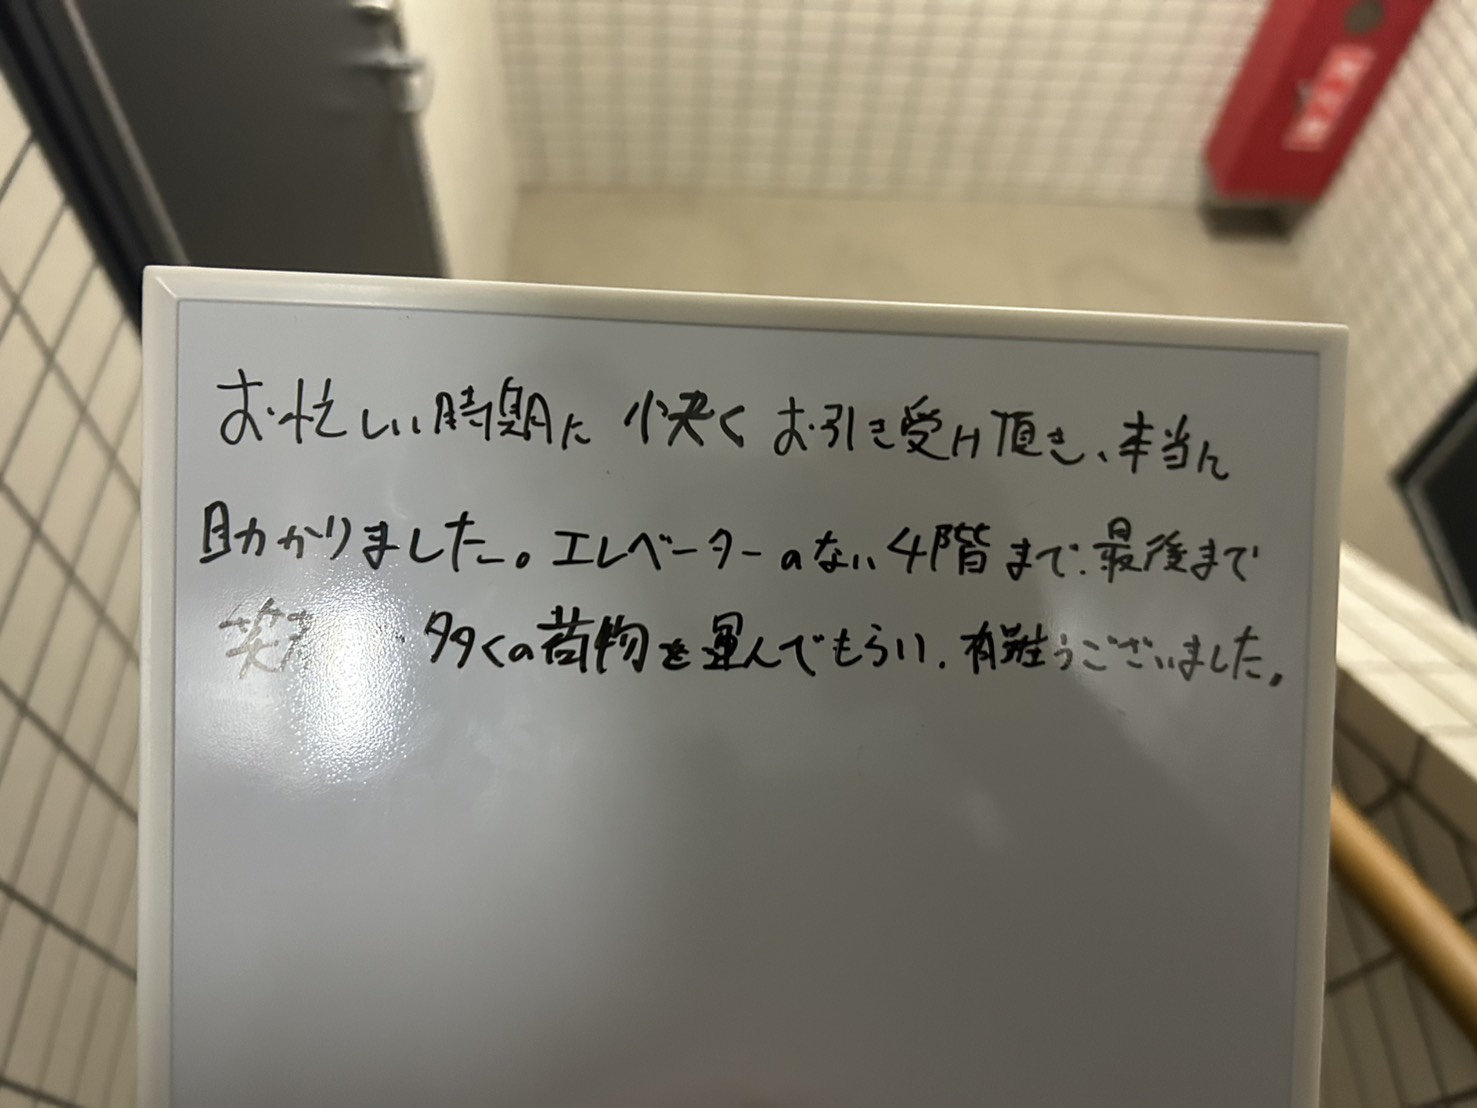 お忙しい時期に 快くお引き受け頂き、本当に
助かりました。エレベーターのない4階まで、最後まで
笑 多くの荷物を運んでもらい、有難うございました。